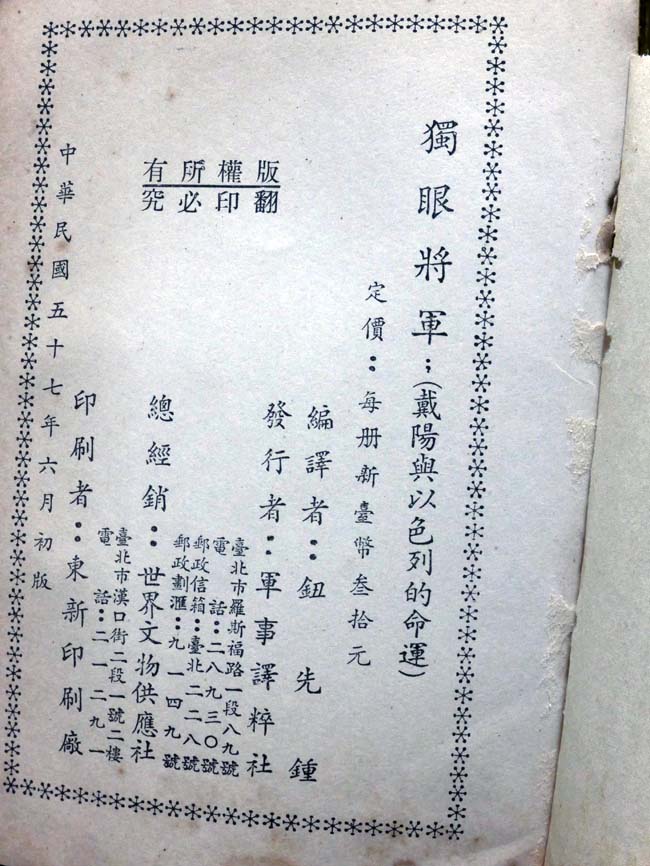 獨眼將軍；(戴陽與以色列的命運)
定價：每册新臺幣叁拾元
版權所有
翻印必究
編譯者：鈕先鍾
發行者：軍事譯粹社
臺北市羅斯福路一段八九號
電話：二八九三〇號
郵政信箱：臺北二二八號
郵政劃滙：九一四九號
總經銷：世界文物供應社
臺北市漢口街二段一號二樓
電話：二一二九一
印刷者：東新印刷廠
中華民國五十七年六月初版